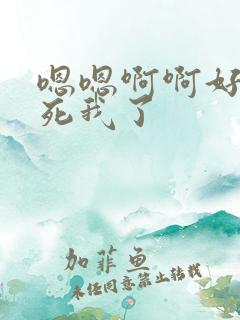 嗯嗯啊啊好
死我了
加菲鱼
未经同意禁止转载